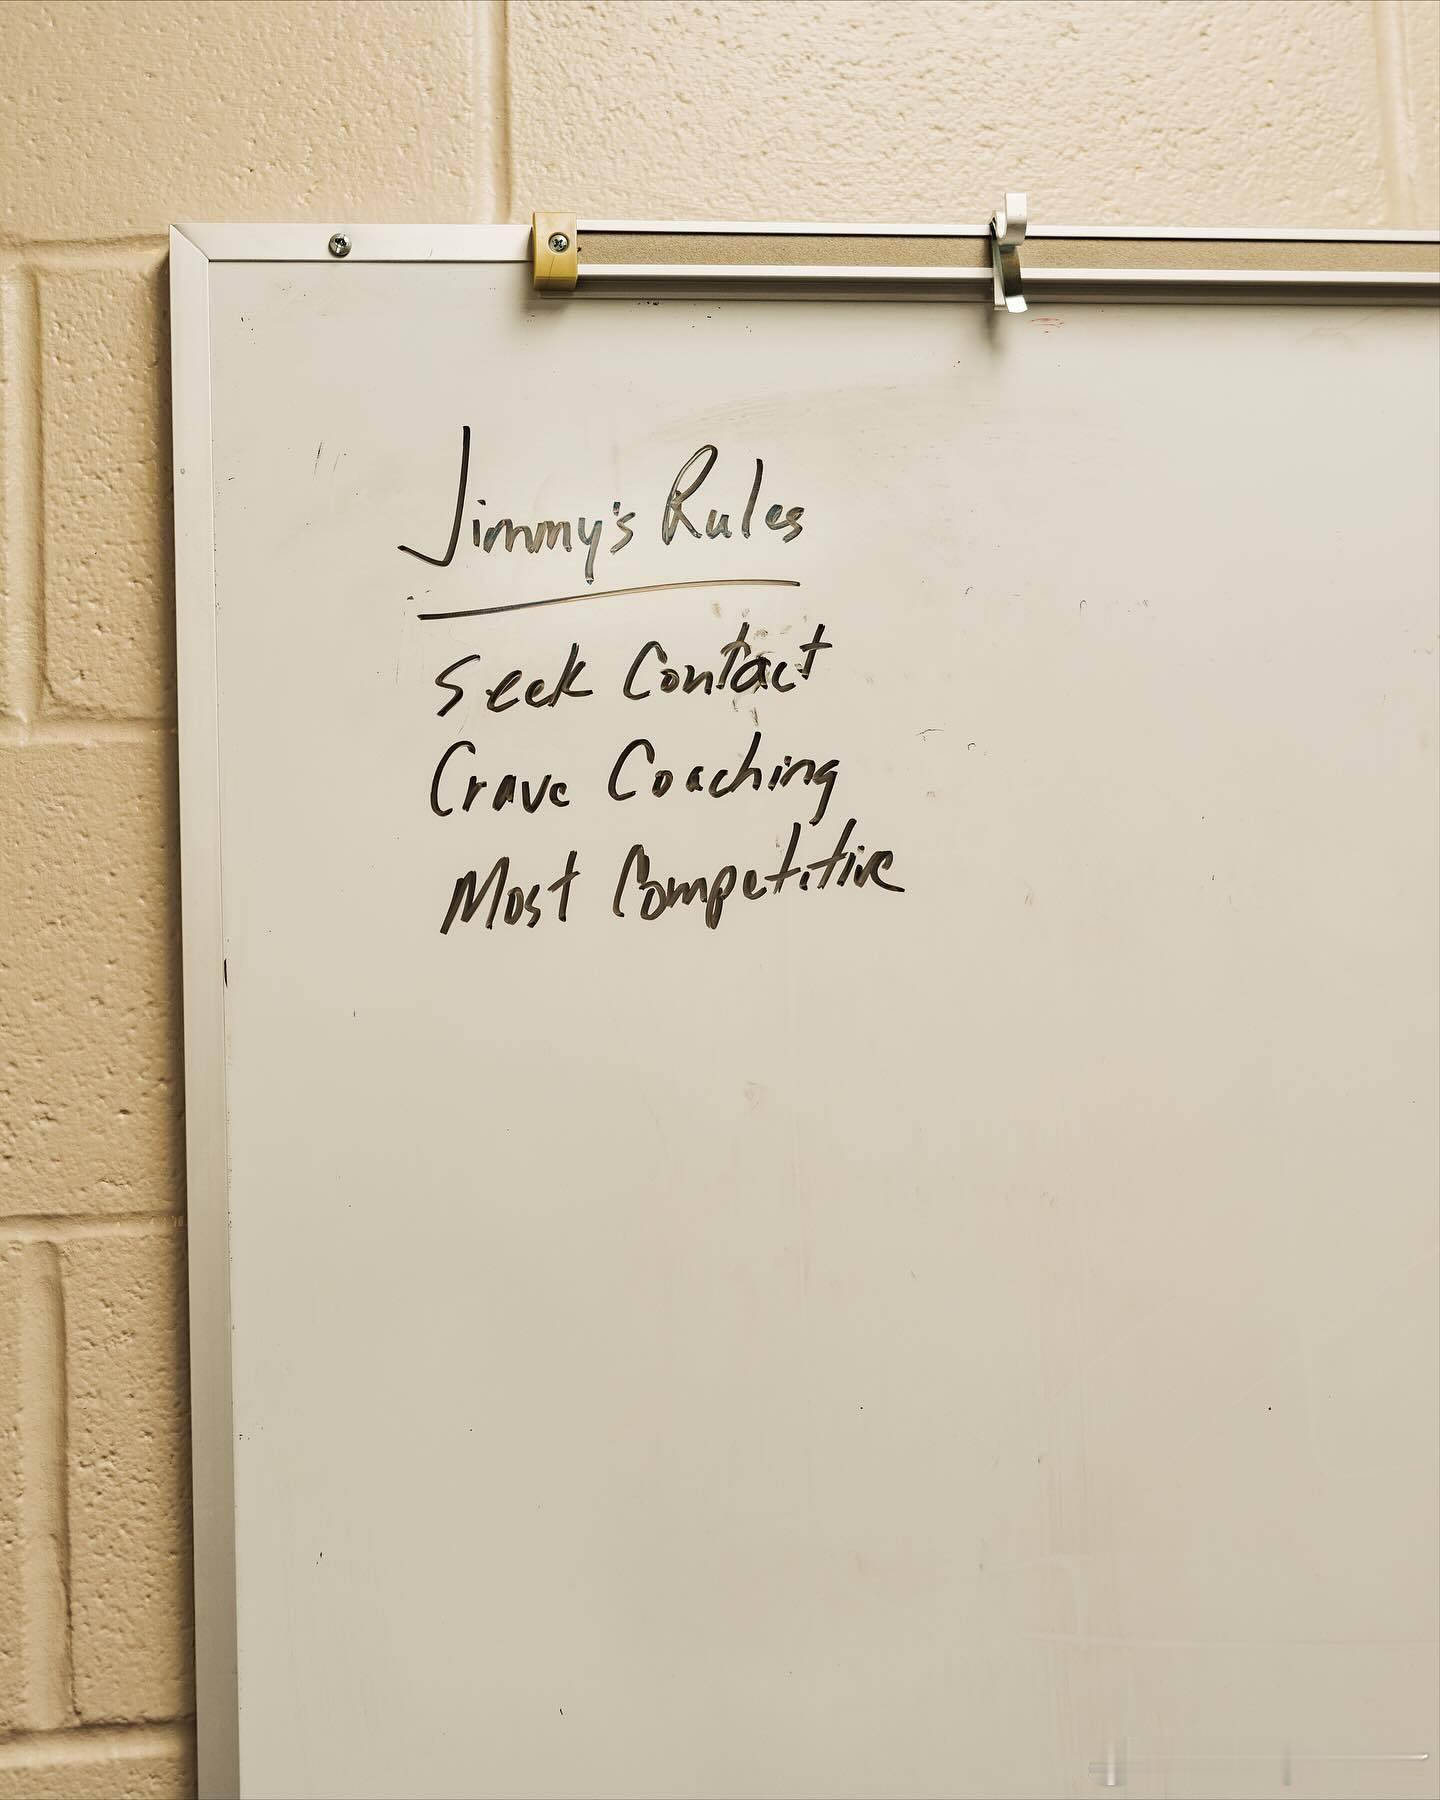 Jimmy's Rules
Seek Contact
Crave Coaching
Most Competitive